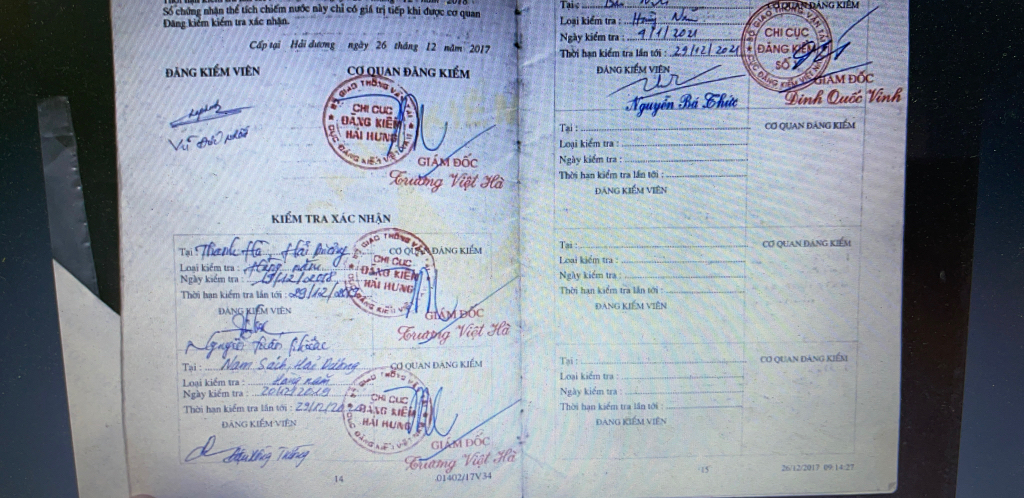 Sổ chứng nhận thể tích chiếm nước này chỉ có giá trị tiếp khi được cơ quan
Đăng kiểm kiểm tra xác nhận.
Cấp tại Hải dương ngày 26 tháng 12 năm 2017
ĐĂNG KIỂM VIÊN
CƠ QUAN ĐĂNG KIỂM
BỘ GIAO THÔNG VẬN TẢI
CHI CỤC
ĐĂNG KIỂM
HẢI HƯNG
CỤC ĐĂNG KIỂM VIỆT NAM
GIÁM ĐỐC
Trương Việt Hà
KIỂM TRA XÁC NHẬN
Tại : Thanh Hà - Hải Dương
CƠ QUAN ĐĂNG KIỂM
Loại kiểm tra : Hàng năm
Ngày kiểm tra : 19/12/2018
Thời hạn kiểm tra lần tới : 29/12/
ĐĂNG KIỂM VIÊN
BỘ GIAO THÔNG VẬN TẢI
CHI CỤC
ĐĂNG KIỂM
HẢI HƯNG
GIÁM ĐỐC
Trương Việt Hà
Nguyễn
Tại : Nam Sách, Hải Dương
CƠ QUAN ĐĂNG KIỂM
Loại kiểm tra : Hàng năm
Ngày kiểm tra : 20/12/2019
Thời hạn kiểm tra lần tới : 29/12/20
ĐĂNG KIỂM VIÊN
CHI CỤC
ĐĂNG KIỂM
HẢI HƯNG
GIÁM ĐỐC
Trương Việt Hà
14
01402/17V34
Tại :
CƠ QUAN ĐĂNG KIỂM
Loại kiểm tra : Hàng Năm
Ngày kiểm tra : 9/1/2021
Thời hạn kiểm tra lần tới : 29/12/2021
ĐĂNG KIỂM VIÊN
BỘ GIAO THÔNG VẬN TẢI
CHI CỤC
ĐĂNG KIỂM
SỐ
CỤC ĐĂNG KIỂM VIỆT NAM
GIÁM ĐỐC
Nguyễn Bá Thức
Đinh Quốc Vinh
Tại :
CƠ QUAN ĐĂNG KIỂM
Loại kiểm tra :
Ngày kiểm tra :
Thời hạn kiểm tra lần tới :
ĐĂNG KIỂM VIÊN
Tại :
CƠ QUAN ĐĂNG KIỂM
Loại kiểm tra :
Ngày kiểm tra :
Thời hạn kiểm tra lần tới :
ĐĂNG KIỂM VIÊN
Tại :
CƠ QUAN ĐĂNG KIỂM
Loại kiểm tra :
Ngày kiểm tra :
Thời hạn kiểm tra lần tới :
ĐĂNG KIỂM VIÊN
15
26/12/2017 09:14:27